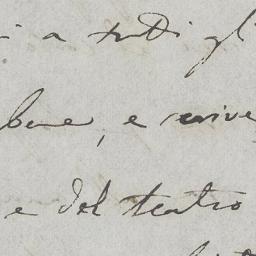 a tutti gli
bene, e scrive
e del teatro